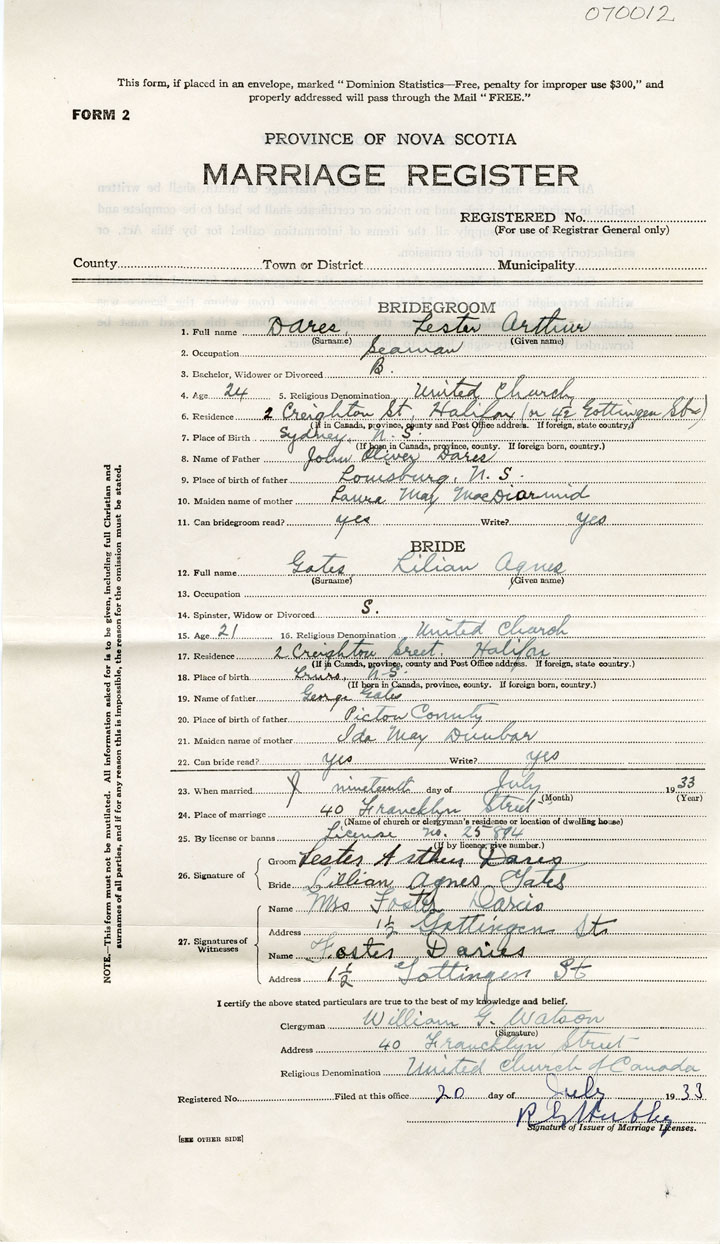 070012
This form, if placed in an envelope, marked "Dominion Statistics—Free, penalty for improper use $300," and
properly addressed will pass through the Mail "FREE."
FORM 2
PROVINCE OF NOVA SCOTIA
MARRIAGE REGISTER
REGISTERED No.
(For use of Registrar General only)
County Town or District Municipality
BRIDEGROOM
1. Full name Dares, Lester Arthur
(Surname) (Given name)
2. Occupation Seaman
3. Bachelor, Widower or Divorced B.
4. Age 24 5. Religious Denomination United Church
6. Residence 2 Creighton St, Halifax (or 42 Gottingen St)
(If in Canada, province, county and Post Office address. If foreign, state country.)
7. Place of Birth Sydney, N. S.
(If born in Canada, province, county. If foreign born, country.)
8. Name of Father John Oliver Dares
9. Place of birth of father Louisburg, N. S.
10. Maiden name of mother Laura May MacDiarmid
11. Can bridegroom read? yes Write? Yes
BRIDE
12. Full name Gates Lilian Agnes
(Surname) (Given name)
13. Occupation
14. Spinster, Widow or Divorced S.
15. Age 21 16. Religious Denomination United Church
17. Residence 2 Creighton Street. Halifax
(If in Canada, province, county and Post Office address. If foreign, state country.)
18. Place of birth Truro, N.S.
(If born in Canada, province, county. If foreign born, country.)
19. Name of father George Gates
20. Place of birth of father Picton County
21. Maiden name of mother Ida May Dunbar
22. Can bride read? yes Write? yes
23. When married nineteenth day of July 1933
(Month) (Year)
24. Place of marriage 40 Francklyn Street
(Name of church or clergyman's residence or location of dwelling house)
25. By license or banns License no. 25894
(If by licence, give number.)
26. Signature of Groom Lester Arthur Dares
Bride Lillian Agnes Gates
27. Signatures of Witnesses
Name Mrs Foster Darcis
Address 1½ Gottingen St
Name Foster Daries
Address 1½ Gottingen St
I certify the above stated particulars are true to the best of my knowledge and belief.
Clergyman William G. Watson
(Signature)
Address 40 Francklyn Street
Religious Denomination United Church of Canada
Registered No. Filed at this office 20 day of July 1933
Signature of Issuer of Marriage Licenses.
[SEE OTHER SIDE]
NOTE.—This form must not be mutilated. All information asked for is to be given, including full Christian and
surnames of all parties, and if for any reason this is impossible, the reason for the omission must be stated.